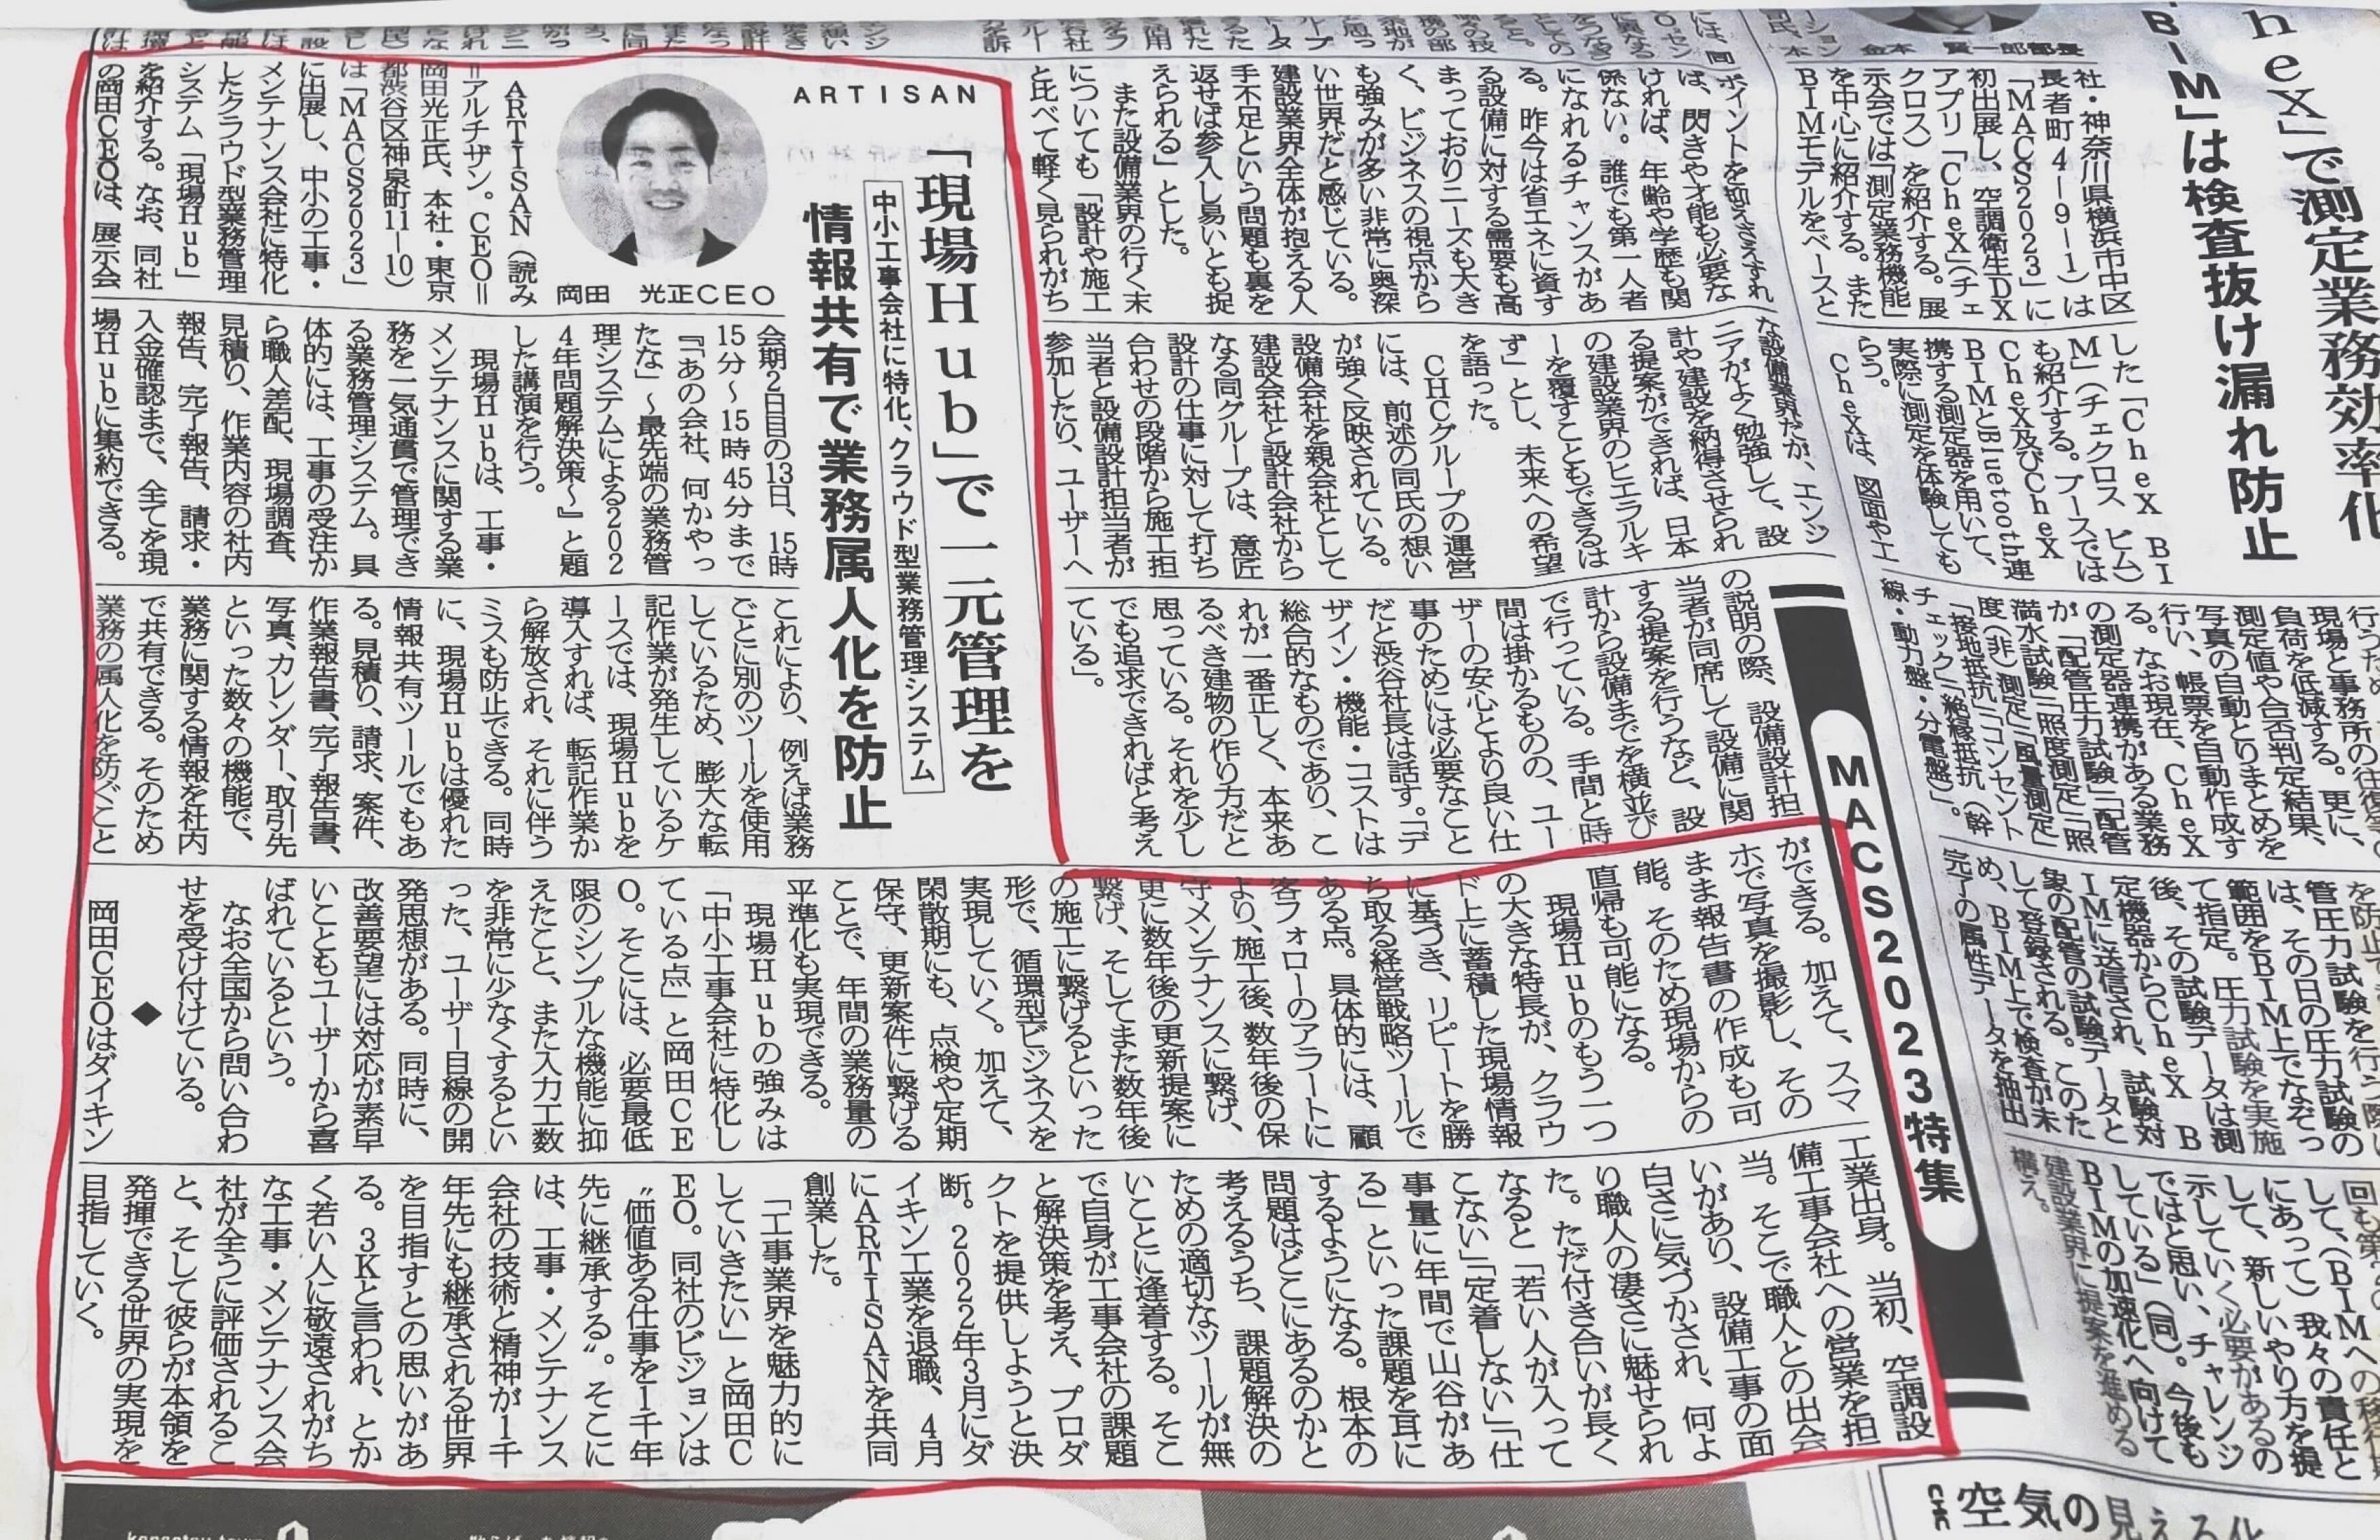 heX」で測定業務効率化
BIM」は検査抜け漏れ防止
金本 賢一郎部長
社・神奈川県横浜市中区
長者町4―9―1)は
「MACS2023」に
初出展し、空調衛生DX
アプリ「CheX」(チェ
クロス)を紹介する。展
示会では「測定業務機能」
を中心に紹介する。また
BIMモデルをベースと
した「CheX BI
M」(チェクロス ビム)
も紹介する。ブースでは
CheX及びCheX
BIMとBluetooth連
携する測定器を用いて、
実際に測定を体験しても
らう。
CheXは、図面や工
現場と事務所の往復等の
負荷を低減する。更に、
測定値や合否判定結果、
写真の自動とりまとめを
行い、帳票を自動作成す
る。なお現在、CheX
の測定器連携がある業務
が「配管圧力試験」「配管
満水試験」「照度測定」「照
度(非)測定」「風量測定」
「接地抵抗」「コンセント
チェック」「絶縁抵抗(幹
線・動力盤・分電盤)」。
管圧力試験を行う際に
は、その日の圧力試験の
範囲をBIM上でなぞっ
て指定。圧力試験を実施
後、その試験データは測
定機器からCheX B
IMに送信され、試験対
象の配管の試験データと
して登録される。このた
め、BIM上で検査が未
完了の属性データを抽出
して、(BIMへの移行期
にあって)我々の責任と
して、新しいやり方を提
示していく必要があるの
ではと思い、チャレンジ
している」(同)。今後も
BIMの加速化へ向けて
建設業界に提案を進める
構え。
MACS2023特集
ポイントを抑えさえすれ
ば、閃きや才能も必要な
ければ、年齢や学歴も関
係ない。誰でも第一人者
になれるチャンスがあ
る。昨今は省エネに資す
る設備に対する需要も高
まっておりニーズも大き
く、ビジネスの視点から
も強みが多い非常に奥深
い世界だと感じている。
建設業界全体が抱える人
手不足という問題も裏を
返せば参入し易いとも捉
えられる」とした。
また設備業界の行く末
についても「設計や施工
と比べて軽く見られがち
な設備業界だが、エンジ
ニアがよく勉強して、設
計や建設を納得させられ
る提案ができれば、日本
の建設業界のヒエラルキ
ーを覆すこともできるは
ず」とし、未来への希望
を語った。
CHCグループの運営
には、前述の同氏の想い
が強く反映されている。
設備会社を親会社として
建設会社と設計会社から
なる同グループは、意匠
設計の仕事に対して打ち
合わせの段階から施工担
当者と設備設計担当者が
参加したり、ユーザーへ
の説明の際、設備設計担
当者が同席して設備に関
する提案を行うなど、設
計から設備までを横並び
で行っている。手間と時
間は掛かるものの、ユー
ザーの安心とより良い仕
事のためには必要なこと
だと渋谷社長は話す。「デ
ザイン・機能・コストは
総合的なものであり、こ
れが一番正しく、本来あ
るべき建物の作り方だと
思っている。それを少し
でも追求できればと考え
ている」。
ARTISAN
「現場Hub」で一元管理を
中小工事会社に特化、クラウド型業務管理システム
情報共有で業務属人化を防止
岡田 光正CEO
ARTISAN(読み
=アルチザン。CEO=
岡田光正氏、本社・東京
都渋谷区神泉町11―10)
は「MACS2023」
に出展し、中小の工事・
メンテナンス会社に特化
したクラウド型業務管理
システム「現場Hub」
を紹介する。なお、同社
の岡田CEOは、展示会
会期2日目の13日、15時
15分～15時45分まで
『「あの会社、何かやっ
たな」～最先端の業務管
理システムによる202
4年問題解決策～』と題
した講演を行う。
現場Hubは、工事・
メンテナンスに関する業
務を一気通貫で管理でき
る業務管理システム。具
体的には、工事の受注か
ら職人差配、現場調査、
見積り、作業内容の社内
報告、完了報告、請求・
入金確認まで、全てを現
場Hubに集約できる。
これにより、例えば業務
ごとに別のツールを使用
しているため、膨大な転
記作業が発生しているケ
ースでは、現場Hubを
導入すれば、転記作業か
ら解放され、それに伴う
ミスも防止できる。同時
に、現場Hubは優れた
情報共有ツールでもあ
る。見積り、請求、案件、
作業報告書、完了報告書、
写真、カレンダー、取引先
といった数々の機能で、
業務に関する情報を社内
で共有できる。そのため
業務の属人化を防ぐこと
ができる。加えて、スマ
ホで写真を撮影し、その
まま報告書の作成も可
能。そのため現場からの
直帰も可能になる。
現場Hubのもう一つ
の大きな特長が、クラウ
ド上に蓄積した現場情報
に基づき、リピートを勝
ち取る経営戦略ツールで
ある点。具体的には、顧
客フォローのアラートに
より、施工後、数年後の保
守メンテナンスに繋げ、
更に数年後の更新提案に
繋げ、そしてまた数年後
の施工に繋げるといった
形で、循環型ビジネスを
実現していく。加えて、
閑散期にも、点検や定期
保守、更新案件に繋げる
ことで、年間の業務量の
平準化も実現できる。
現場Hubの強みは
「中小工事会社に特化し
ている点」と岡田CE
O。そこには、必要最低
限のシンプルな機能に抑
えたこと、また入力工数
を非常に少なくするとい
った、ユーザー目線の開
発思想がある。同時に、
改善要望には対応が素早
いこともユーザーから喜
ばれているという。
なお全国から問い合わ
せを受け付けている。
◆
岡田CEOはダイキン
工業出身。当初、空調設
備工事会社への営業を担
当。そこで職人との出会
いがあり、設備工事の面
白さに気づかされ、何よ
り職人の凄さに魅せられ
た。ただ付き合いが長く
なると「若い人が入って
こない」「定着しない」「仕
事量に年間で山谷があ
る」といった課題を耳に
するようになる。根本の
問題はどこにあるのかと
考えるうち、課題解決の
ための適切なツールが無
いことに逢着する。そこ
で自身が工事会社の課題
と解決策を考え、プロダ
クトを提供しようと決
断。2022年3月にダ
イキン工業を退職、4月
にARTISANを共同
創業した。
「工事業界を魅力的に
していきたい」と岡田C
EO。同社のビジョンは
〝価値ある仕事を1千年
先に継承する〟。そこに
は、工事・メンテナンス
会社の技術と精神が1千
年先にも継承される世界
を目指すとの思いがあ
る。3Kと言われ、とか
く若い人に敬遠されがち
な工事・メンテナンス会
社が全うに評価されるこ
と、そして彼らが本領を
発揮できる世界の実現を
目指していく。
CHC
空気の見える化